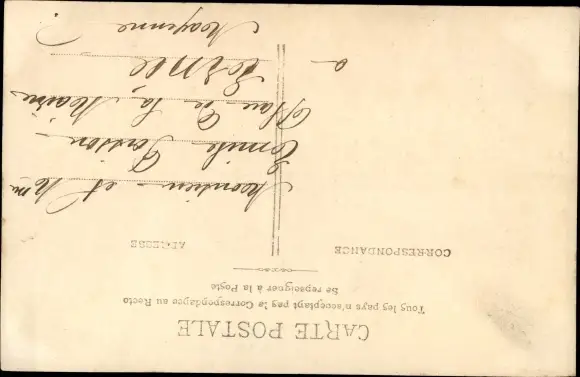 CARTE POSTALE
Tous les pays n'acceptent pas la Correspondance au Recto
Se renseigner à la Poste
CORRESPONDANCE
ADRESSE
Monsieur et Mme
Emile
Place de la Mairie
à Ernée
Mayenne